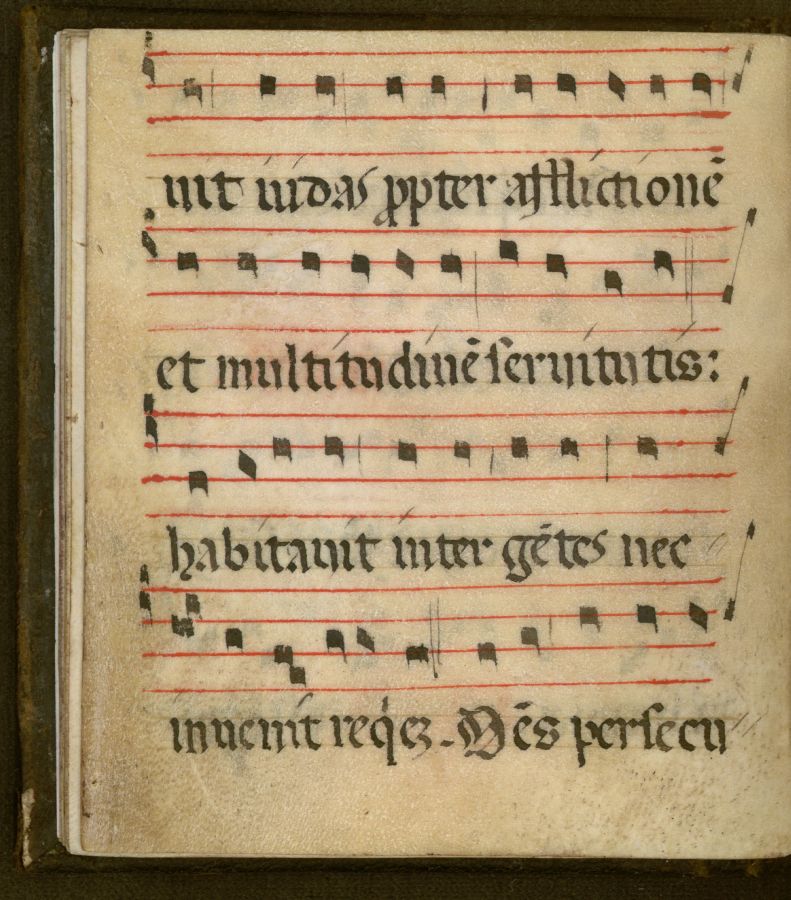 uit iudas ꝓpter afflictionē
et multitudinē seruitutis:
habitauit inter gētes nec
inuenit reqͥeꝫ. Oēs persecu